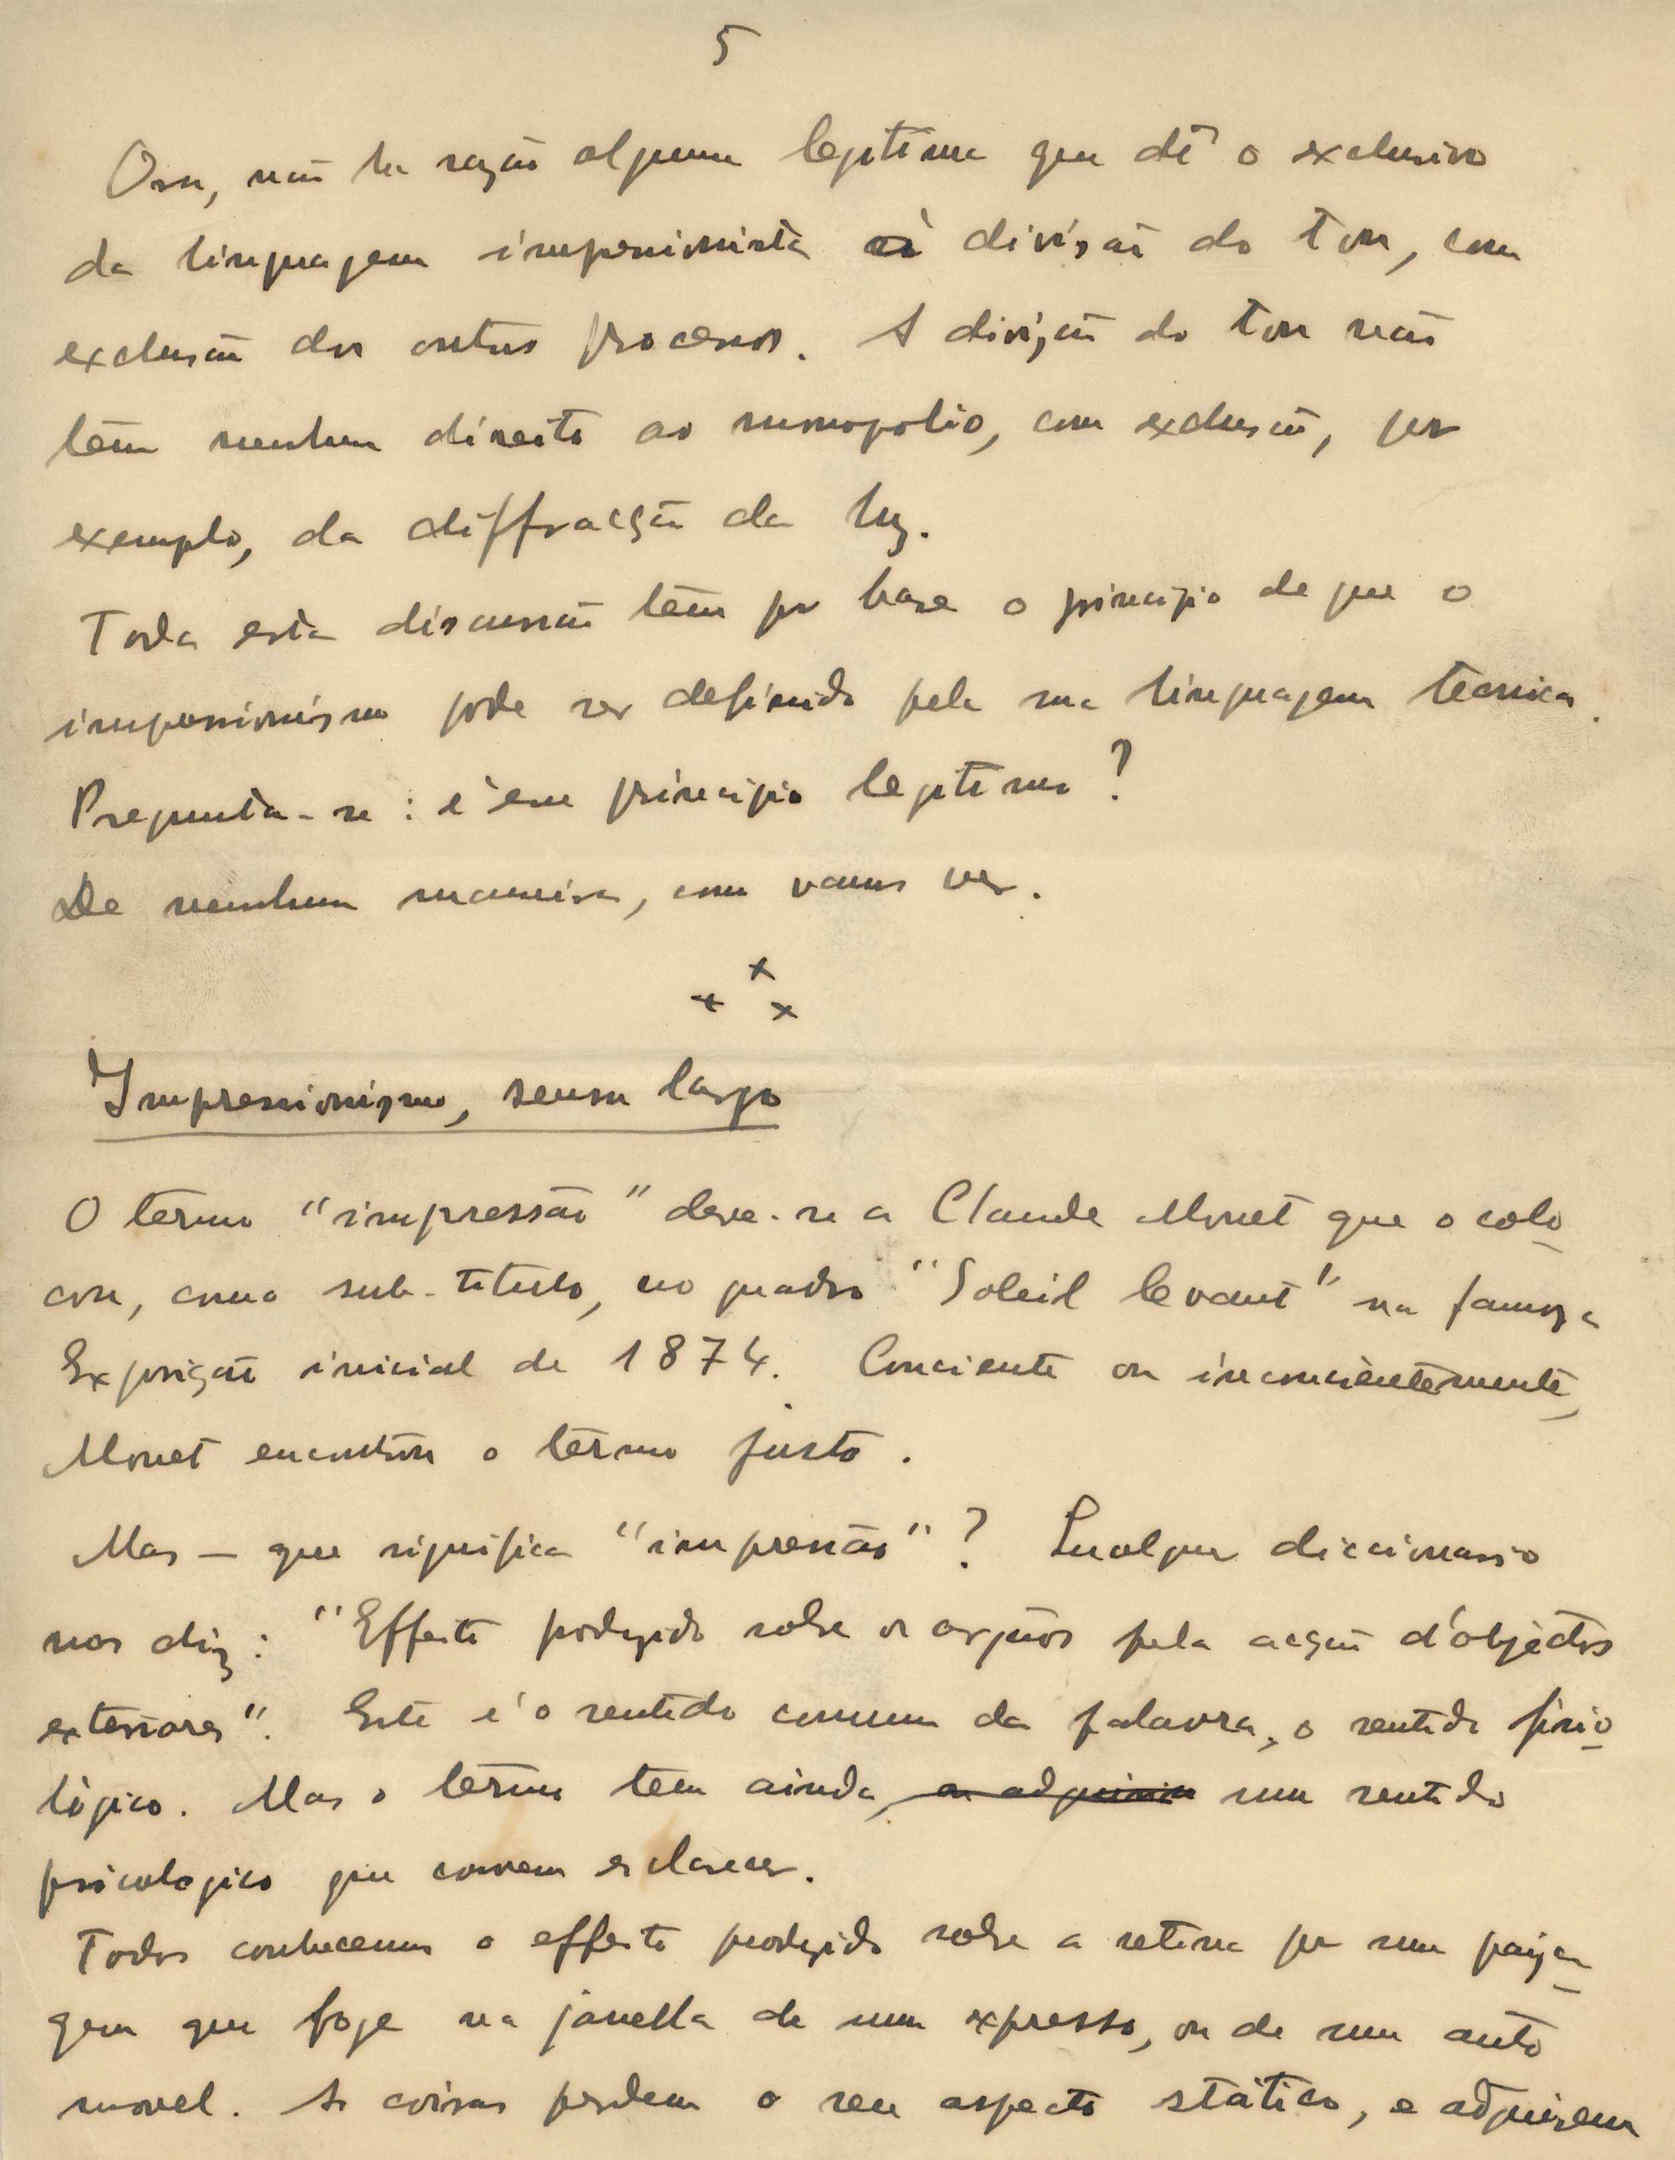 5
Ora, não ha razão alguma legitima que dê o exclusivo
da linguagem impressionista à divisão do tom, com
exclusão dos outros processos. A divisão do tom não
têm nenhum direito ao monopolio, com exclusão, por
exemplo, da diffracção da luz.
Toda esta discussão têm por base o principio de que o
impressionismo pode ser definido pela sua linguagem tecnica.
Pregunta-se: é esse principio legitimo?
De nenhuma maneira, como vamos ver.
x
x x
Impressionismo, sensu largo
O têrmo "impressão" deve-se a Claude Monet que o colo
cou, como sub-titulo, no quadro "Soleil levant" na famosa
Exposição inicial de 1874. Conciente ou inconcientemente,
Monet encontrou o têrmo justo.
Mas — que significa "impressão"? Qualquer diccionario
nos diz: "Effeito produzido sobre os orgãos pela acção d'objéctos
exteriores". Este é o sentido comum da palavra, o sentido fisio
lògico. Mas o têrmo tem ainda, ou adquiriu um sentido
psicologico que convem esclarecer.
Todos conhecemos o effeito produzido sobre a retina por uma paiza
gem que foge na janella de um expresso, ou de um auto
movel. As coisas perdem o seu aspecto stático, e adquirem